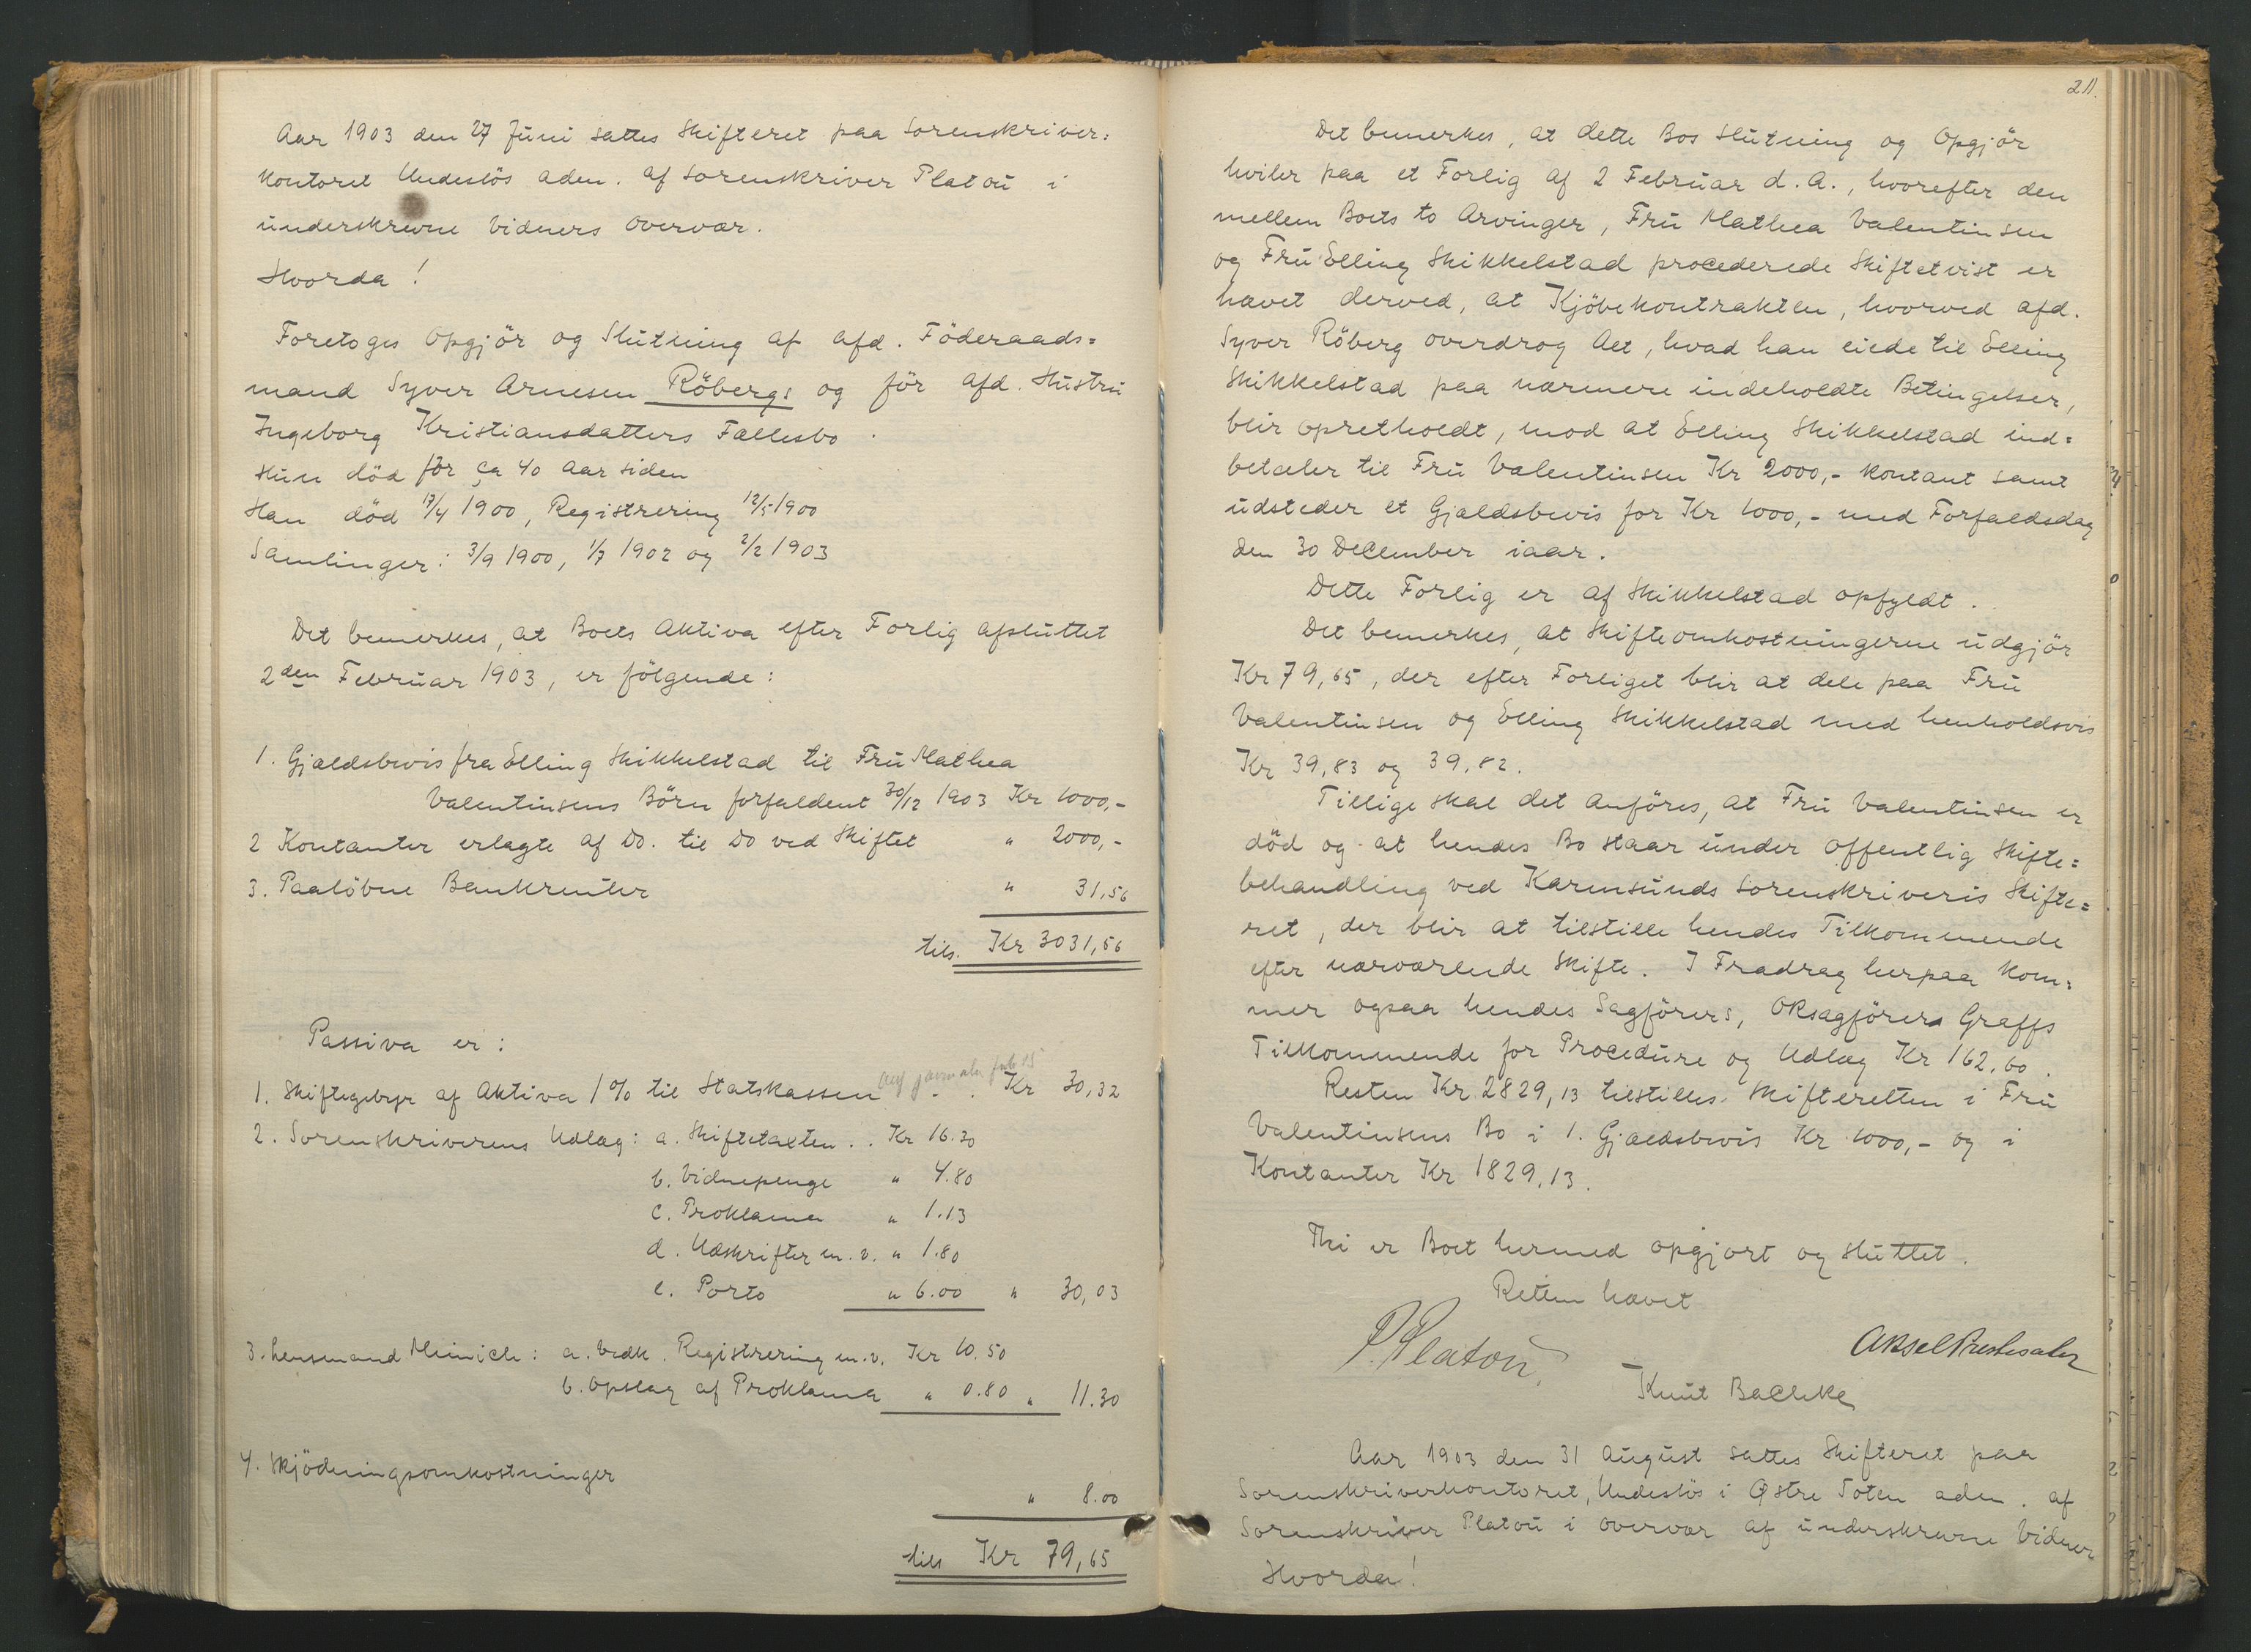 Aar 1903 den 27 Juni sattes Skifteret paa Sorenskriver=
kontoret Undeslös aden. af Sorenskriver Platou i
underskrevne Vidners Overvær.
Hvorda!
Foretoges Opgjör og Slutning af afd. Föderaads=
mand Syver Arnesen Röbergs og før afd. Hustru
Ingeborg Kristiansdatters Fællesbo.
Hun död før ca 40 Aar siden
Han död 17/4 1900, Registrering 12/5 1900
Samlinger: 3/9 1900, 1/7 1902 og 2/2 1903
Det bemerkes, at Boets Aktiva efter Forlig afsluttet
2den Februar 1903, er fölgende:
1. Gjældsbevis fra Elling Skikkelstad til Fru Mathea
Valentinsens Börn forfaldent 30/12 1903 Kr 1000,-
2 Kontanter erlagte af Do. til Do ved Skiftet " 2000,-
3. Paalöbne Bankrenter " 31,56
tils. Kr 3031,56
Passiva er:
1. Skiftegebyr af Aktiva 1% til Statskassen . . Kr 30,32
2. Sorenskriverens Udlæg: a. Skiftetaxten . . Kr 16.30
b. Vidnepenge " 4.80
c. Proklama " 1.13
d. Udskrifter m.v. " 1.80
e. Porto " 6.00 " 30,03
3. Lensmand Minich: a. Vedk. Registrering m.v. Kr 10.50
b. Opslag af Proklama " 0.80 " 11.30
4. Skjödningsomkostninger
" 8.00
tils Kr 79,65
211.
Det bemerkes, at dette Bos Slutning og Opgjör
hviler paa et Forlig af 2 Februar d.A., hvorefter den
mellem Boets to Arvinger, Fru Mathea Valentinsen
og Fru Elling Skikkelstad procederede Skiftetvist er
hævet derved, at Kjöbekontrakten, hvorved afd.
Syver Röberg overdrog Alt, hvad han eiede til Elling
Skikkelstad paa nærmere indeholdte Betingelser,
blir opretholdt, mod at Elling Skikkelstad ind=
betaler til Fru Valentinsen Kr 2000,- kontant samt
udsteder et Gjældsbevis for Kr 1000,- med Forfaldsdag
den 30 December iaar.
Dette Forlig er af Skikkelstad opfyldt.
Det bemerkes, at Skifteomkostningerne udgjör
Kr 79,65, der efter Forliget blir at dele paa Fru
Valentinsen og Elling Skikkelstad med henholdsvis
Kr 39,83 og 39.82.
Tillige skal det anföres, at Fru Valentinsen er
död og at hendes Bo staar under offentlig Skifte=
behandling ved Karmsunds Sorenskriveris Skifte=
ret, der blir at tilstille hendes Tilkommende
efter nærværende Skifte. I Fradrag herpaa kom=
mer ogsaa hendes Sagförers, ORsagförer Graffs
Tilkommende for Procedure og Udlæg Kr 162,60.
Resten Kr. 2829,13 tilstilles Skifteretten i Fru
Valentinsens Bo i 1. Gjældsbevis Kr 1000,- og i
Kontanter Kr 1829,13.
Thi er Boet hermed opgjort og sluttet.
Retten hævet
P. Platou,
Aksel
Knut Bachke
Aar 1903 den 31 August sattes Skifteret paa
Sorenskriverkontoret, Undeslös i Østre Toten aden. af
Sorenskriver Platou i Overvær af underskrevne Vidner
Hvorda!